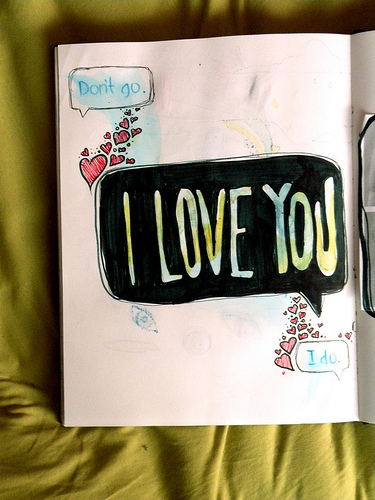 Don't go.
I LOVE YOU
I do.